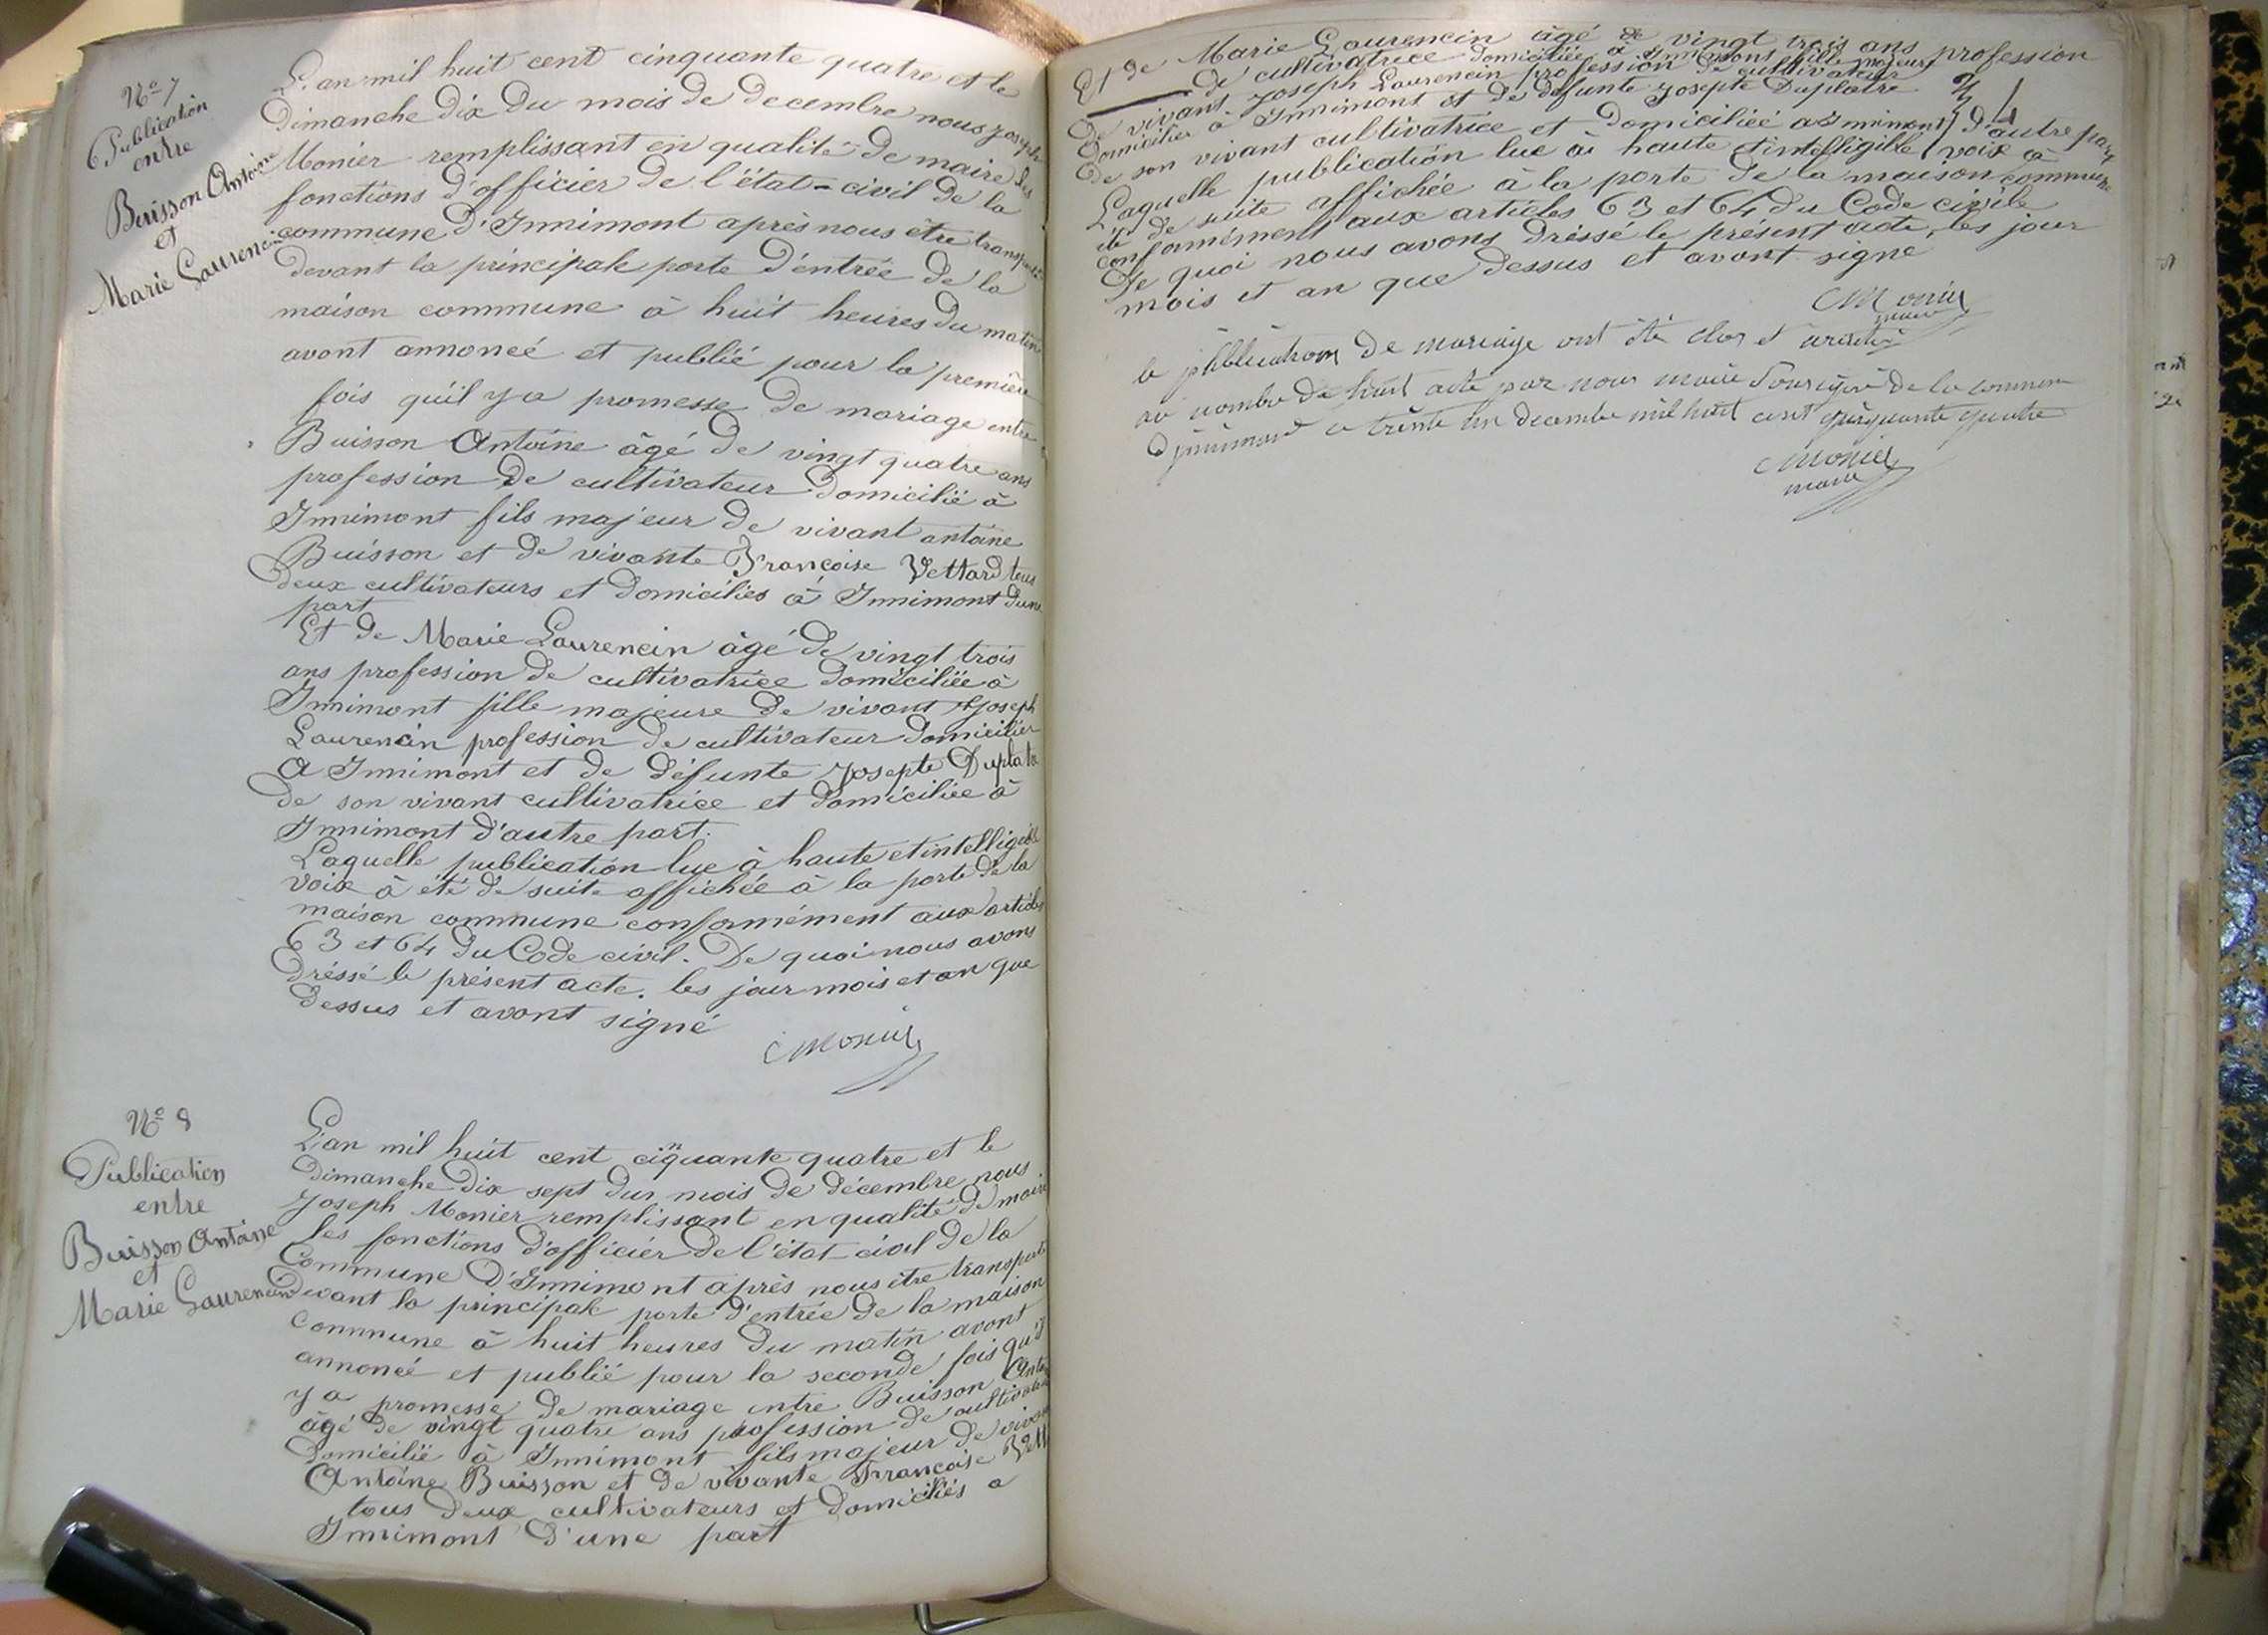 Nº 7
Publication
entre
Buisson Antoine
et
Marie Laurencin
L'an mil huit cent cinquante quatre et le
Dimanche Dix Du mois de decembre nous joseph
Monier remplissant en qualité de maire les
fonctions d'officier de l'état-civil de la
commune d'Innimont après nous être transporté
devant la principale porte d'entrée de la
maison commune à huit heures du matin
avont annoncé et publié pour la première
fois qu'il y a promesse de mariage entre
Buisson Antoine âgé de vingt quatre ans
profession de cultivateur domicilié à
Innimont fils majeur de vivant antoine
Buisson et de vivante Françoise Vettard tous
deux cultivateurs et domiciliés à Innimont d'une
part
Et de Marie Laurencin âgé de vingt trois
ans profession de cultivatrice domiciliée à
Innimont fille majeure de vivant joseph
Laurencin profession de cultivateur domicilier
a Innimont et de défunte josepte Duplatre
de son vivant cultivatrice et domiciliée à
Innimont d'autre part.
Laquelle publication lue à haute et intelligible
voix à été de suite affichée à la porte de la
maison commune conformément aux articles
63 et 64 du Code civil. De quoi nous avons
dréssé le présent acte. les jour mois et an que
dessus et avont signé
Monier
Nº 8
Publication
entre
Buisson Antoine
et
Marie Laurencin
L'an mil huit cent cinquante quatre et le
Dimanche Dix sept du mois de décembre nous
joseph Monier remplissant en qualité de maire
les fonctions d'officier de l'état-civil de la
Commune d'Innimont après nous être transporté
devant la principale porte d'entrée de la maison
commune à huit heures du matin avont
annoncé et publié pour la seconde fois qu'il
y a promesse de mariage entre Buisson Antoine
âgé de vingt quatre ans profession de cultivateur
domicilié à Innimont fils majeur de vivant
Antoine Buisson et de vivante Françoise Vett
tous deux cultivateurs et domiciliés a
Innimont d'une part
Et de Marie Laurencin âgé de vingt trois ans profession
de cultivatrice domiciliée a Innimont fille majeure
De vivant joseph Laurencin profession de cultivateur
domicilier à Innimont et de défunte josepte Duplatre
de son vivant cultivatrice et domiciliée a Innimont d'autre part
Laquelle publication lue à haute et intelligible voix a
été de suite affichée à la porte de la maison commune
conformément aux articles 63 et 64 du Code civile
De quoi nous avons dréssé le présent acte, les jour
mois et an que dessus et avont signe
Monier
maire
publications de mariage ont été clos et arrêté
au nombre de huit acte par nous maire soussigné de la commune
d'jnnimont ce trente un decembre mil huit cent cinquante quatre
Monier
maire